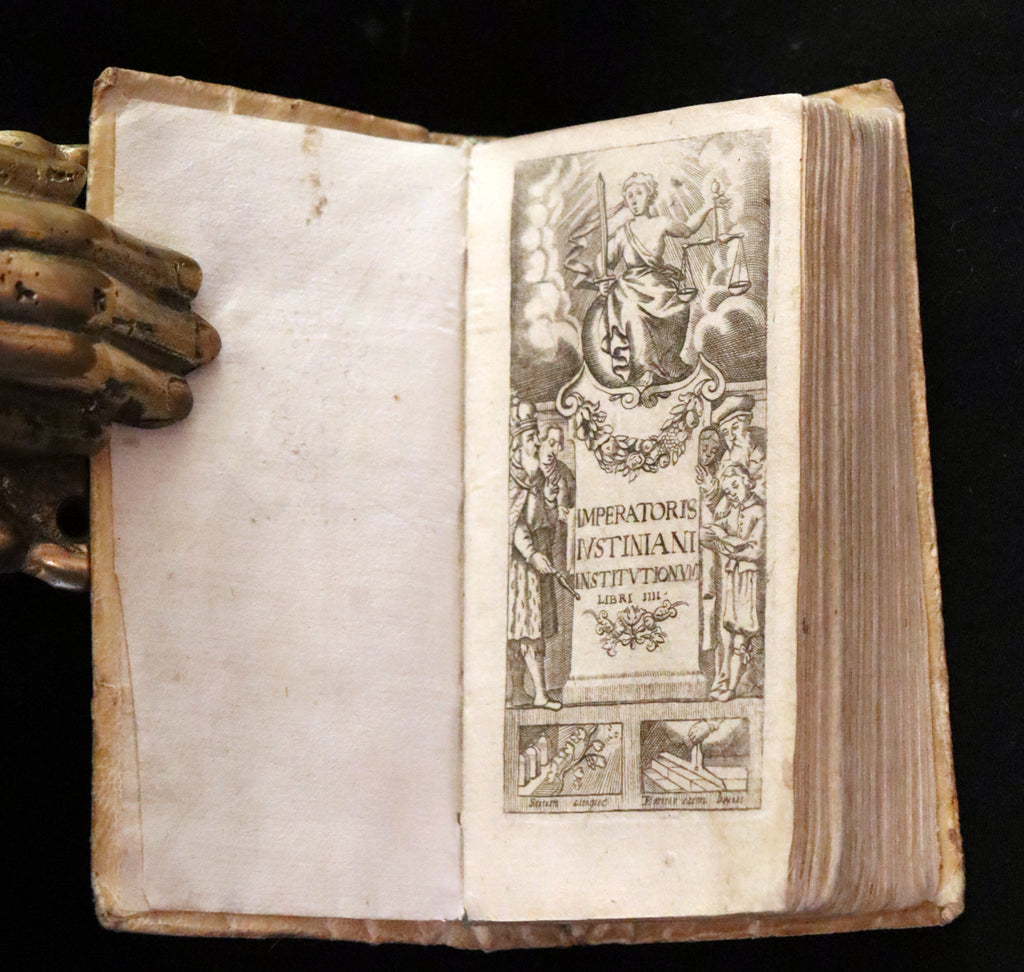 IMPERATORIS
IVSTINIANI
INSTITVTIONVM
LIBRI IIII.
Suum cuique